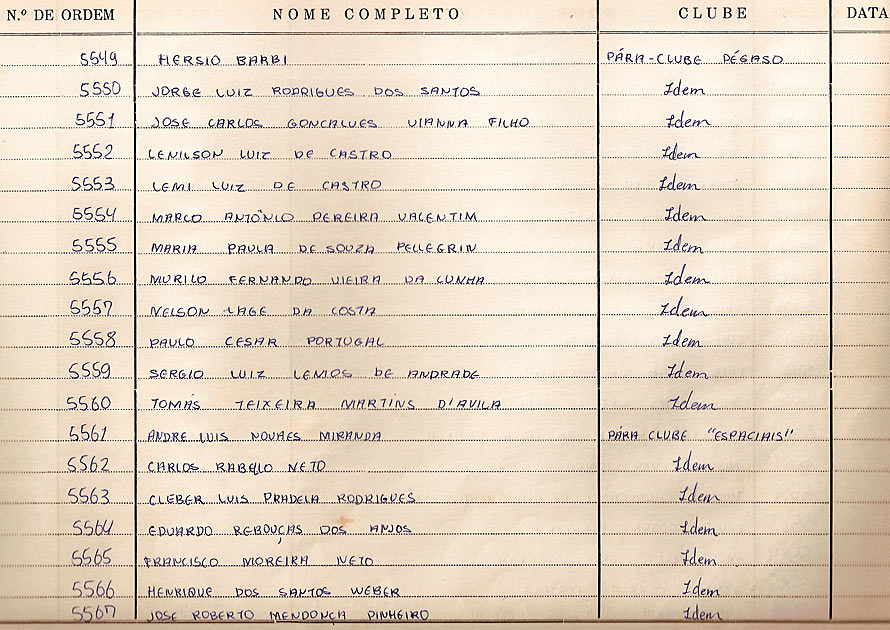 N.º DE ORDEM NOME COMPLETO CLUBE DATA
5549 HERSIO BARBI PÁRA-CLUBE PÉGASO
5550 JORGE LUIZ RODRIGUES DOS SANTOS Idem
5551 JOSE CARLOS GONCALVES VIANNA FILHO Idem
5552 LENILSON LUIZ DE CASTRO Idem
5553 LEMI LUIZ DE CASTRO Idem
5554 MARCO ANTÔNIO PEREIRA VALENTIM Idem
5555 MARIA PAULA DE SOUZA PELLEGRIN Idem
5556 MURILO FERNANDO VIEIRA DA CUNHA Idem
5557 NELSON LAGE DA COSTA Idem
5558 PAULO CESAR PORTUGAL Idem
5559 SERGIO LUIZ LEMOS DE ANDRADE Idem
5560 TOMÁS TEIXEIRA MARTINS D'AVILA Idem
5561 ANDRE LUIS NOVAES MIRANDA PÁRA CLUBE "ESPACIAIS"
5562 CARLOS RABELO NETO Idem
5563 CLEBER LUIS PRADELA RODRIGUES Idem
5564 EDUARDO REBOUÇAS DOS ANJOS Idem
5565 FRANCISCO MOREIRA NETO Idem
5566 HENRIQUE DOS SANTOS WEBER Idem
5567 JOSE ROBERTO MENDONÇA PINHEIRO Idem